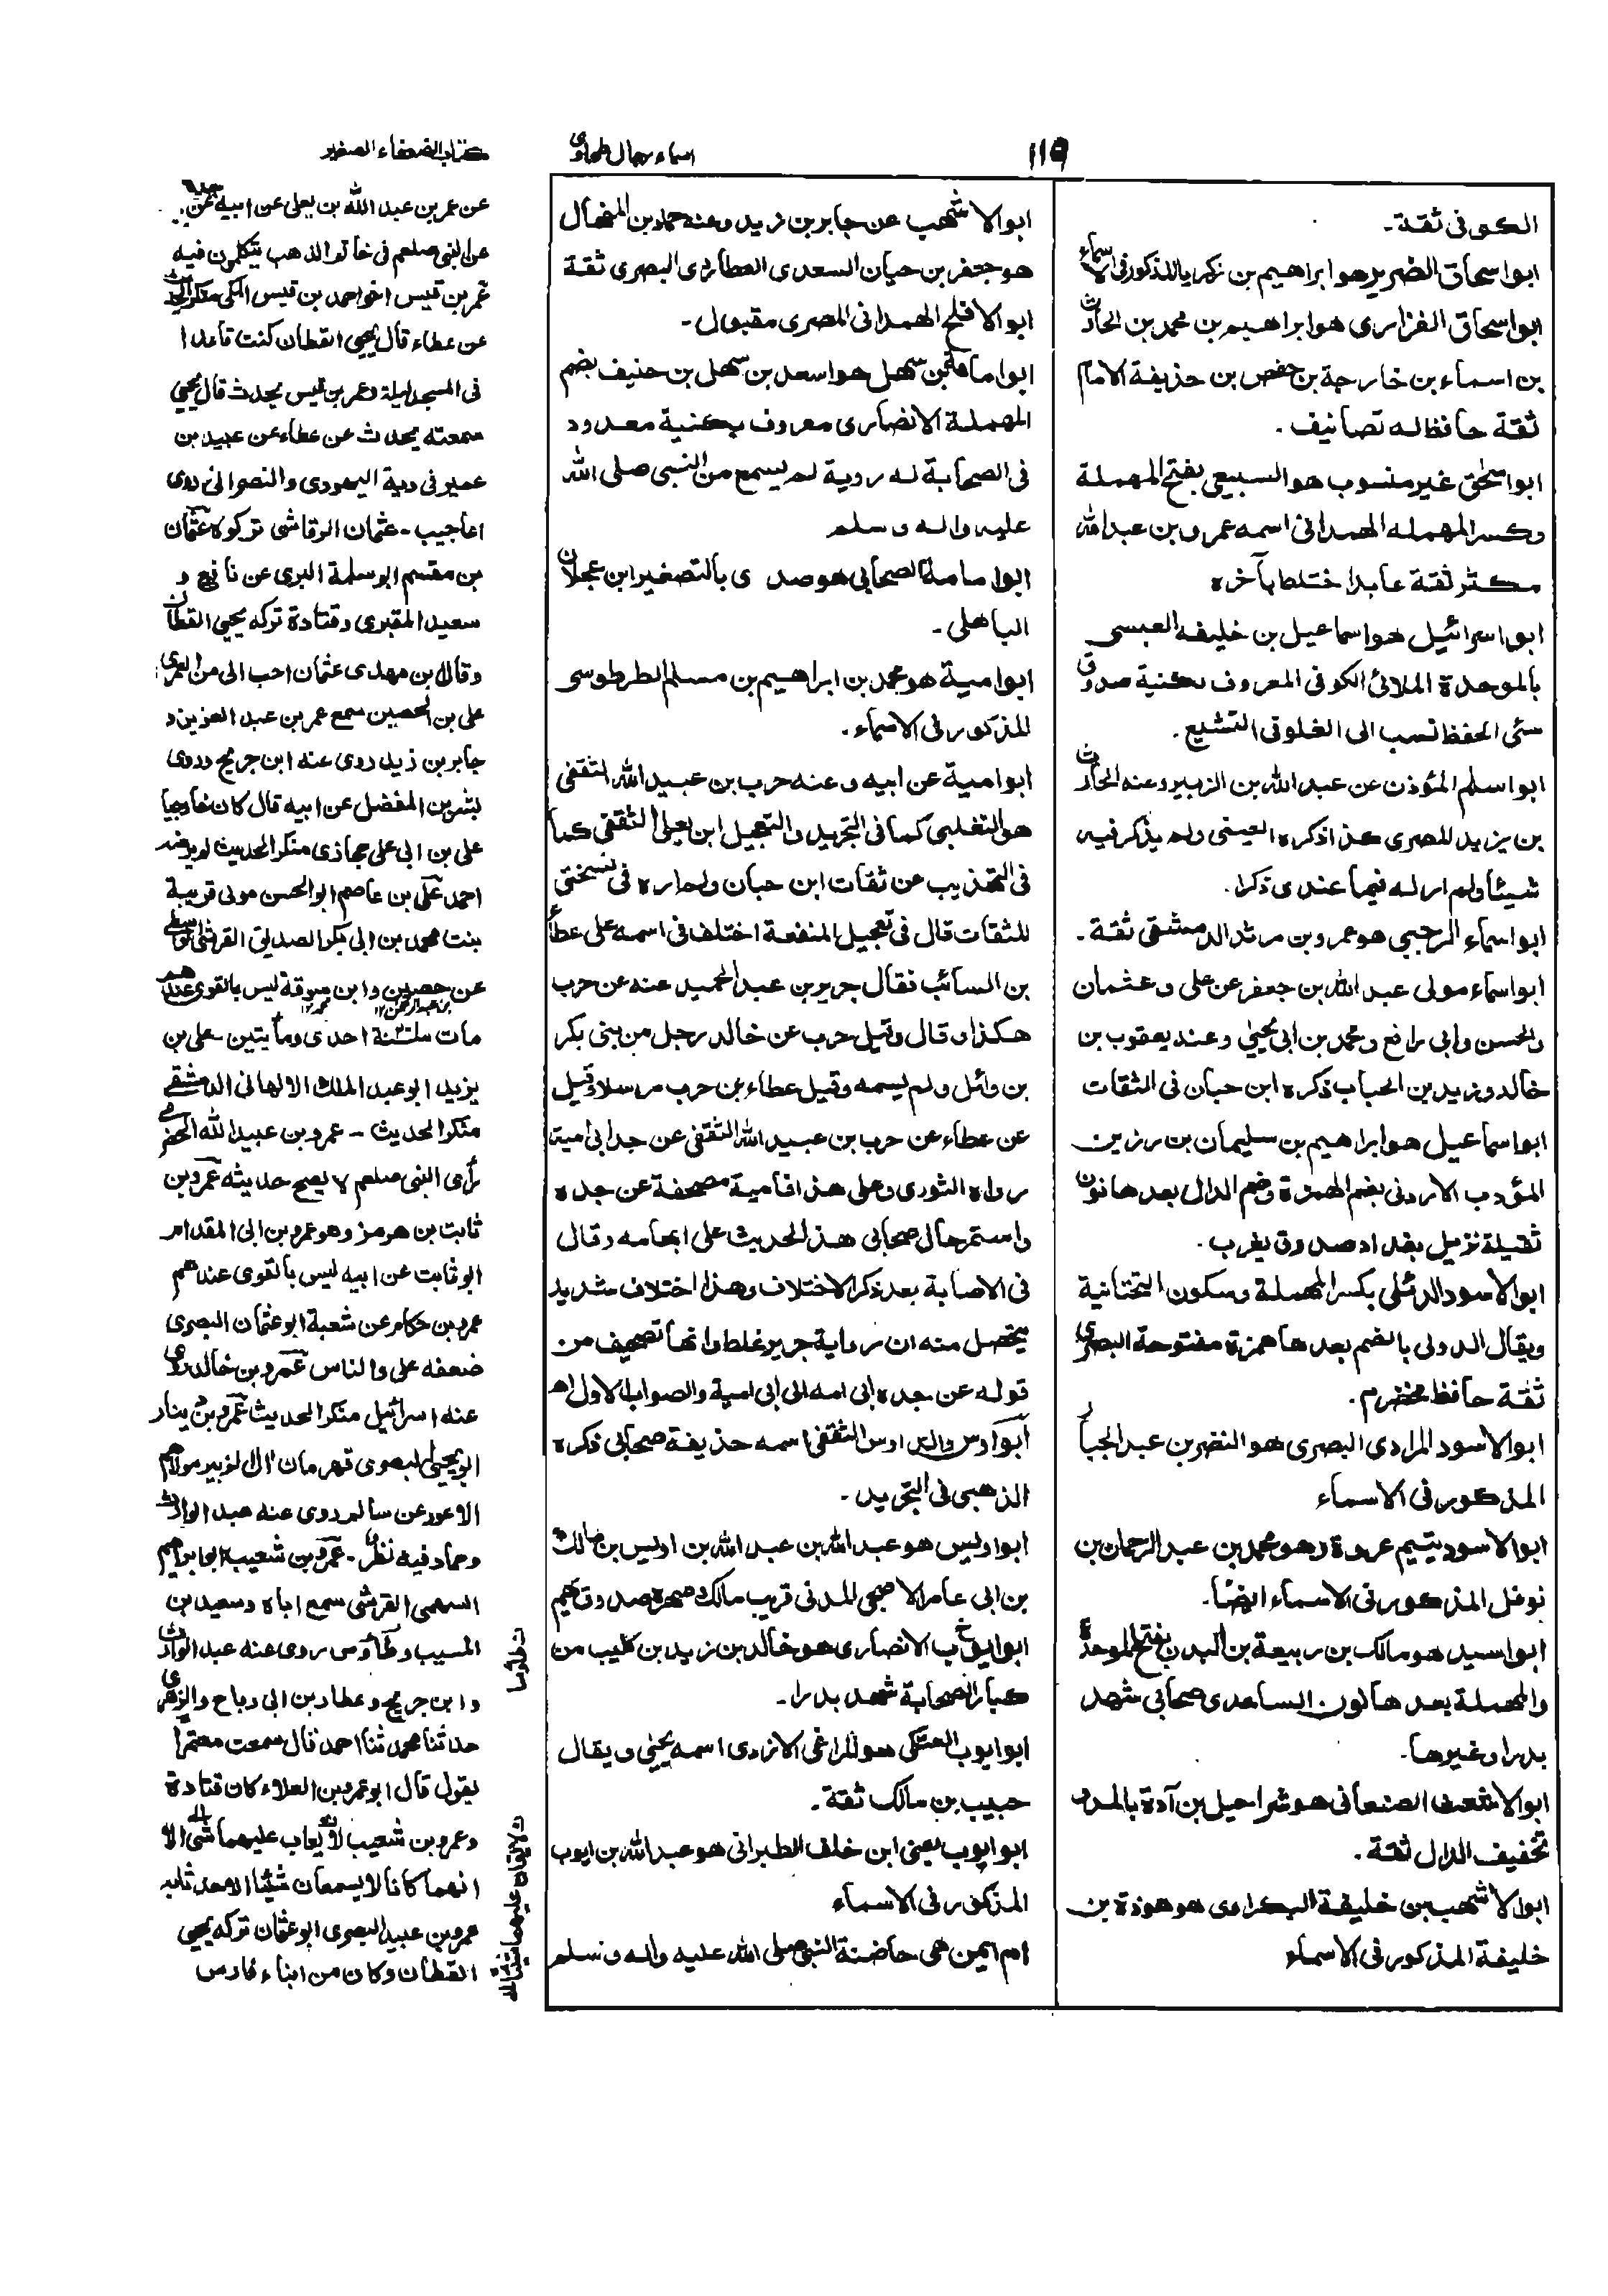 ١١٥
اسماء رجال طحاوی
كتاب الضعفاء الصغير
الكوفى ثقة۔
ابو اسحاق الضرير هو ابراهيم بن زكريا المذكور فى الاسماء
ابو اسحاق الفزارى هو ابراهيم بن محمد بن الحارث
بن اسماء بن خارجة بن حفص بن حذيفة الامام
ثقة حافظ له تصانيف ۔
ابو اسحٰق غير منسوب هو السبيعى بفتح المهملة
وكسر المهمله الهمدانى اسمه عمرو بن عبد الله
مكثر ثقة عابد اختلط بآخره
ابو اسرائيل هو اسماعيل بن خليفه العبسى
بالموحدة الملائى الكوفى المعروف بكنية صدوق
سئى الحفظ نسب الى الغلو فى التشيع ۔
ابو اسلم المؤذن عن عبد الله بن الزبير وعنه الحارث
بن يزيد المصرى هكذا ذكره العينى ولم يذكر فيه
شيئا ولم ار له فيما عندى ذكرا ۔
ابو اسماء الرحبى هو عمرو بن مرثد الدمشقى ثقة ۔
ابو اسماء مولى عبد الله بن جعفر عن على وعثمان
والحسن وابى رافع و محمد بن ابى يحيٰى وعنه يعقوب بن
خالد وزيد بن الحباب ذكره ابن حبان فى الثقات
ابو اسماعيل هو ابراهيم بن سليمان بن رزين
المؤدب الاردنى بضم الهمزة وضم الدال بعدها نون
ثقيلة نزيل بغداد صدوق يغرب ۔
ابو الاسود الدئلى بكسر المهملة وسكون التحتانية
ويقال الدولى بالضم بعدها همزة مفتوحة البصرى
ثقة حافظ مخضرم ۔
ابو الاسود المرادى البصرى هو النضر بن عبد الجبار
المذكور فى الاسماء
ابو الاسود يتيم عروة وهو محمد بن عبد الرحمان بن
نوفل المذكور فى الاسماء ايضا۔
ابو اسيد هو مالك بن ربيعة بن البدن بفتح الموحدة
والمهملة بعدها نون الساعدى صحابى شهد
بدرا وغيرها۔
ابو الاشعث الصنعانى هو شراحيل بن آدة بالمد و
تخفيف الدال ثقة ۔
ابو الاشهب بن خليفة البكراوى هو هوذة بن
خليفة المذكور فى الاسماء
ابو الاشهب عن جابر بن زيد وعنه حماد بن المنهال
هو جعفر بن حيان السعدى العطاردى البصرى ثقة
ابو الافلح الهمدانى المصرى مقبول ۔
ابو امامة بن سهل هو اسعد بن سهل بن حنيف بضم
المهملة الانصارى معروف بكنية معدود
فى الصحابة له روية لم يسمع من النبى صلى الله
عليه واله وسلم
ابو امامة الصحابى هو صدى بالتصغير ابن عجلان
الباهلى ۔
ابو امية هو محمد بن ابراهيم بن مسلم الطرطوسى
المذكور فى الاسماء ۔
ابو امية عن ابيه وعنه حرب بن عبيد الله الثقفى
هو التغلبى كما فى التجريد والتعجيل ابن يعلى الثقفى كما
فى التهذيب عن ثقات ابن حبان ولم اره فى نسختى
للثقات قال فى تعجيل المنفعة اختلف فى اسمه على عطاء
بن السائب فقال جرير بن عبد الحميد عنه عن حرب
هكذا وقال وقيل حرب عن خالد رجل من بنى بكر
بن وائل ولم يسمه وقيل عطاء عن حرب مرسلا وقيل
عن عطاء عن حرب بن عبيد الله الثقفى عن جد ابى امية
رواه الثورى وعلى هذا فامية مصحفة عن جده
واستمر حال صحابى هذا الحديث على ابهامه وقال
فى الاصابة بعد ذكر الاختلاف وهذا اختلاف شديد
يتحصل منه ان رواية جرير غلط وانها تصحيف من
قوله عن جده ابى امه الى ابى امية والصواب الاول اه
ابو اوس والد اوس الثقفى اسمه حذيفة صحابى ذكره
الذهبى فى التجريد ۔
ابو اويس هو عبد الله بن عبد الله بن اويس بن مالك
بن ابى عامر الاصبحى المدنى قريب مالك وصهره صدوق يهم
ابو ايوب الانصارى هو خالد بن زيد بن كليب من
كبار الصحابة شهد بدرا ۔
ابو ايوب العتكى هو المراغى الازدى اسمه يحيٰى ويقال
حبيب بن مالك ثقة ۔
ابو ايوب يعنى ابن خلف الطبرانى هو عبد الله بن ايوب
المذكور فى الاسماء
ام ايمن هى حاضنة النبى صلى الله عليه واله وسلم
عن عمر بن عبد الله بن يعلى عن ابيه عن جده
عن النبى صلعم فى خاتم الذهب يتكلمون فيه
عمر بن قيس اخو احمد بن قيس المكى منكر الحديث
عن عطاء قال يحيى القطان كنت قاعدا
فى المسجد ليلة وعمر بن قيس يحدث قال يحيى
سمعته يحدث عن عطاء عن عبيد بن
عمير فى دية اليهودى والنصرانى روى
اعاجيب ۔ عثمان الرقاشى تركوه عثمان
بن مقسم ابو سلمة البرى عن نافع و
سعيد المقبرى وقتادة تركه يحيى القطان
وقال ابن مهدى عثمان احب الى من العمرى
على بن الحصين سمع عمر بن عبد العزيز و
جابر بن زيد روى عنه ابن جريج وروى
بشر بن المفضل عن ابيه قال كان خارجيا
على بن ابى على حجازى منكر الحديث لم يرضه
احمد على بن عاصم ابو الحسن مولى قريبة
بنت محمد بن ابى بكر الصديق القرشى الواسطى
عن حصين وابن سوقة ليس بالقوى عندهم
بن عبد الرحمن ١٢ محمد ١٢
مات سنة احدى ومأيتين ۔ على بن
يزيد ابو عبد الملك الالهانى الدمشقى
منكر الحديث ۔ عمرو بن عبيد الله الحضرمى
رأى النبى صلعم لا يصح حديثه عمرو بن
ثابت بن هرمز وهو عمرو بن ابى المقدام
ابو ثابت عن ابيه ليس بالقوى عندهم
عمرو بن حكام عن شعبة ابو عثمان البصرى
ضعفه على والناس عمرو بن خالد روى
عنه اسرائيل منكر الحديث عمرو بن دينار
ابو يحيىٰ البصرى قهرمان اٰل الزبير مولاهم
الاعور عن سالم روى عنه عبد الوارث
وحماد فيه نظر ۔ عمرو بن شعيب ابو ابراهيم
السهمى القرشى سمع اباه وسعيد بن
المسيب وطاؤس روى عنه عبد الوارث
وابن جريج وعطاء بن ابى رباح والزهرى
حدثنا محمد ثنا احمد قال سمعت معتمرا
يقول قال ابو عمرو بن العلاء كان قتادة
وعمرو بن شعيب لا يعاب عليهما شئ الا
انهما كانا لا يسمعان شيئا الا حدثا به
عمرو بن عبيد البصرى ابو عثمان تركه يحيى
القطان وكان من ابناء فارس